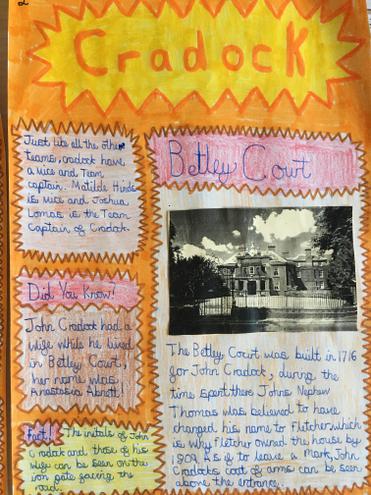 2
Cradock
Just like all the other
teams, cradock have
a Vice and Team
captain. Matilde Hinds
is Vice and Joshua
Lomas is the Team
Captain of Cradock.
Did You Know?
John Cradock had a
wife while he lived
in Betley Court,
her name was
Anastasia Abnett!
Fact! The initals of John
Cradock and those of his
wife can be seen on the
iron gate facing the
road.
Betley Court
The Betley Court was built in 1716
for John Cradock, during the
time spent there Johns Nephew
Thomas was believed to have
changed his name to Fletcher which
is why Fletcher owned the house by
1809. As if to leave a mark, John
Cradocks coat of arms can be seen
above the entrance.